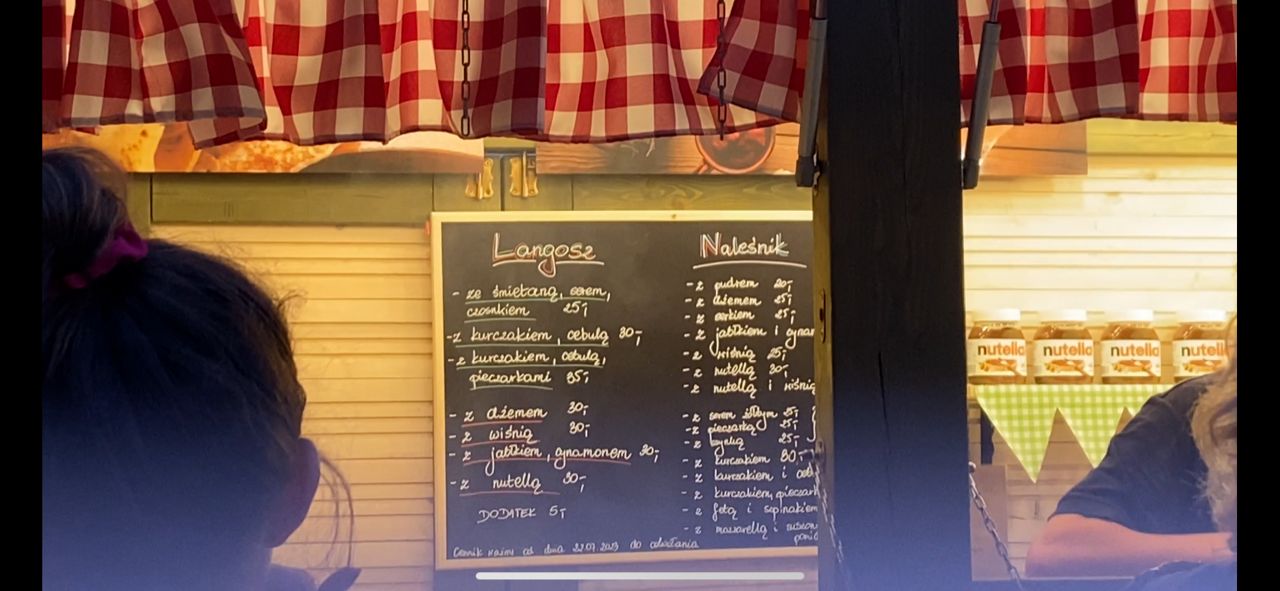 Langosz
- ze śmietaną, serem,
czosnkiem 25,-
- z kurczakiem, cebulą 30,-
- z kurczakiem, cebulą,
pieczarkami 35,-
- z dżemem 30,-
- z wiśnią 30,-
- z jabłkiem, cynamonem 30,-
- z nutellą 30,-
DODATEK 5,-
Cennik ważny od dnia 22.07.2023 do odwołania
Naleśnik
- z pudrem 20,-
- z dżemem 25,-
- z serkiem 25,-
- z jabłkiem i cynam
- z wiśnią 25,-
- z nutellą 30,-
- z nutellą i wiśnią
- z serem żółtym 25,-
- z pieczarką 25,-
- z szynką 25,-
- z kurczakiem 30,-
- z kurczakiem i ceb
- z kurczakiem, pieczark
- z fetą i szpinakiem
- z mozzarellą i suszon
pomi
nutella nutella nutella nutella